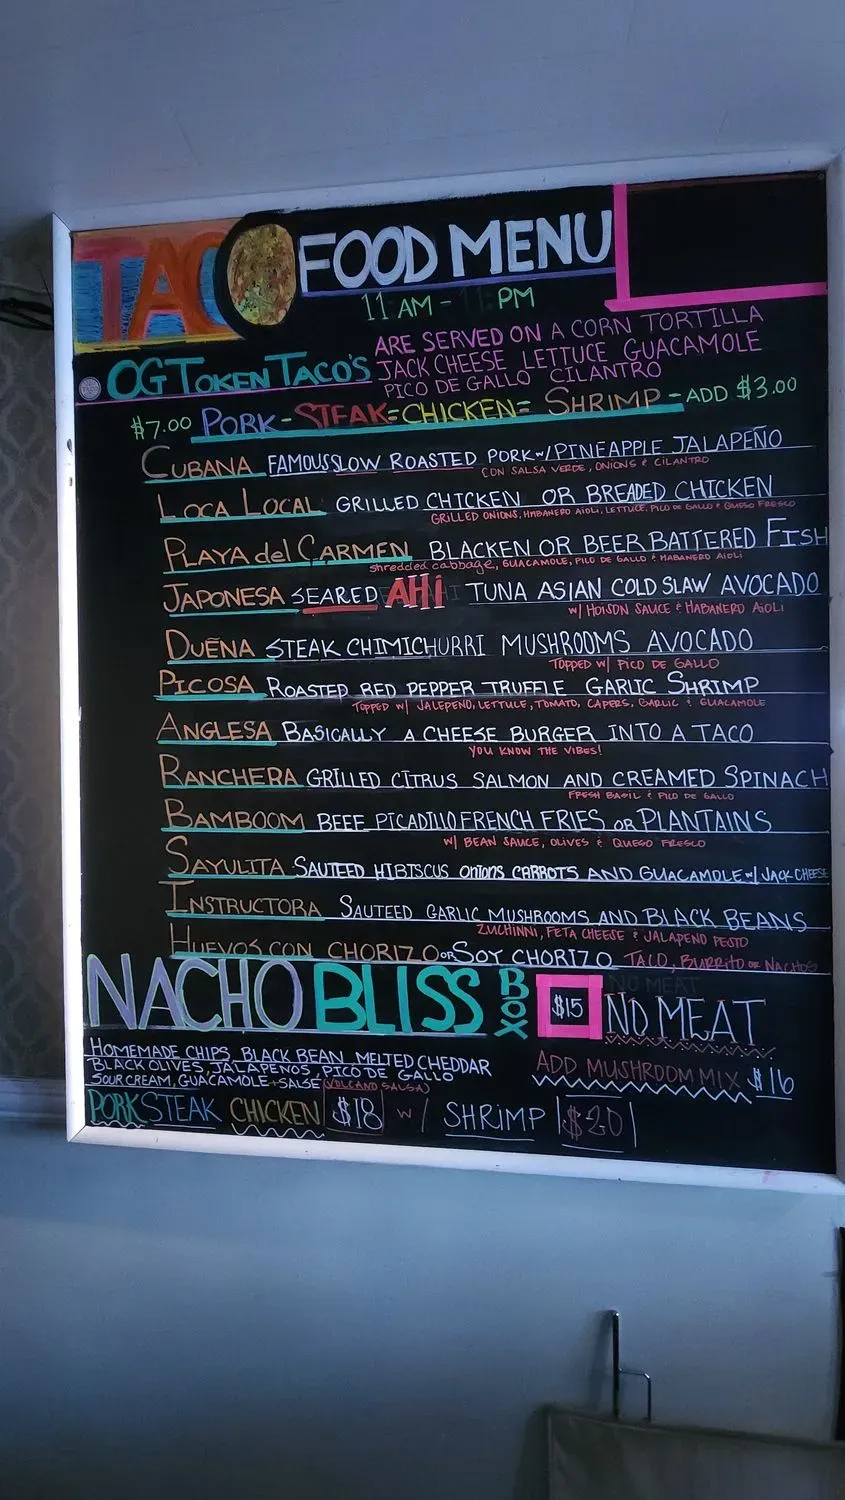 TACO FOOD MENU
11 AM - 11 PM
OG TOKEN TACO'S
ARE SERVED ON A CORN TORTILLA
JACK CHEESE LETTUCE GUACAMOLE
PICO DE GALLO CILANTRO
$7.00 PORK - STEAK = CHICKEN = SHRIMP - ADD $3.00
CUBANA FAMOUS SLOW ROASTED PORK w/ PINEAPPLE JALAPEÑO
CON SALSA VERDE, ONIONS & CILANTRO
LOCA LOCAL GRILLED CHICKEN OR BREADED CHICKEN
GRILLED ONIONS, HABANERO AIOLI, LETTUCE, PICO DE GALLO & QUESO FRESCO
PLAYA del CARMEN BLACKEN OR BEER BATTERED FISH
shredded cabbage, GUACAMOLE, PICO DE GALLO & HABANERO AIOLI
JAPONESA SEARED AHI TUNA ASIAN COLD SLAW AVOCADO
W/ HOISON SAUCE & HABANERO AIOLI
DUEÑA STEAK CHIMICHURRI MUSHROOMS AVOCADO
TOPPED W/ PICO DE GALLO
PICOSA ROASTED RED PEPPER TRUFFLE GARLIC SHRIMP
TOPPED W/ JALEPENO, LETTUCE, TOMATO, CAPERS, GARLIC & GUACAMOLE
ANGLESA BASICALLY A CHEESE BURGER INTO A TACO
YOU KNOW THE VIBES!
RANCHERA GRILLED CITRUS SALMON AND CREAMED SPINACH
FRESH BASIL & PICO DE GALLO
BAMBOOM BEEF PICADILLO FRENCH FRIES OR PLANTAINS
W/ BEAN SAUCE, OLIVES & QUESO FRESCO
SAYULITA SAUTEED HIBISCUS ONIONS CARROTS AND GUACAMOLE w/ JACK CHEESE
INSTRUCTORA SAUTEED GARLIC MUSHROOMS AND BLACK BEANS
ZUCHINNI, FETA CHEESE & JALAPENO PESTO
HUEVOS CON CHORIZO OR SOY CHORIZO TACO, BURRITO OR NACHOS
NACHO BLISS BOX $15 NO MEAT
HOMEMADE CHIPS, BLACK BEAN, MELTED CHEDDAR
BLACK OLIVES, JALAPENOS, PICO DE GALLO
SOUR CREAM, GUACAMOLE + SALSE (VOLCANO SALSA)
ADD MUSHROOM MIX $16
PORK STEAK CHICKEN $18 w/ SHRIMP $20